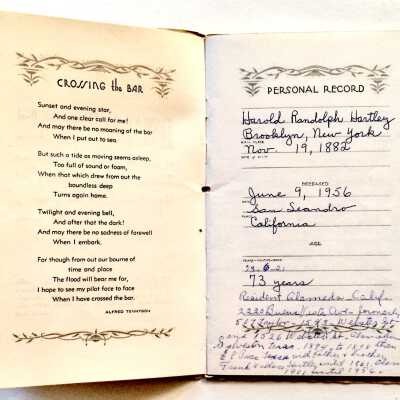 CROSSING the BAR
Sunset and evening star,
And one clear call for me!
And may there be no moaning of the bar
When I put out to sea.
But such a tide as moving seems asleep,
Too full of sound or foam,
When that which drew from out the
boundless deep
Turns again home.
Twilight and evening bell,
And after that the dark!
And may there be no sadness of farewell
When I embark.
For though from out our bourne of
time and place
The flood will bear me far,
I hope to see my pilot face to face
When I have crossed the bar.
ALFRED TENNYSON
PERSONAL RECORD
Harold Randolph Hartley
Brooklyn, New York
Nov. 19, 1882
DECEASED
June 9, 1956
San Leandro
California
AGE
73 years
Resident Alameda Calif.
2220 Buena Vista Ave formerly
and 1526 Webster St